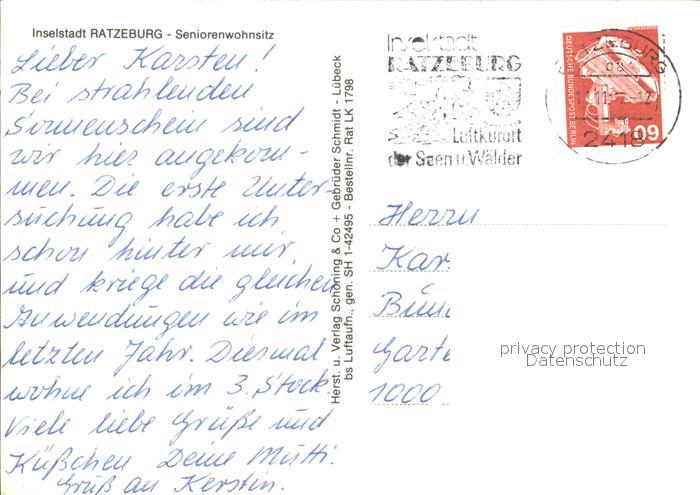 Inselstadt RATZEBURG - Seniorenwohnsitz
Lieber Karsten!
Bei strahlenden
Sonnenschein sind
wir hier angekom-
men. Die erste Unter-
suchung habe ich
schon hinter mir,
und kriege die gleichen
Anwendungen wie im
letzten Jahr. Diesmal
wohne ich im 3. Stock.
Viele liebe Grüße und
Küßchen Deine Mutti.
Gruß an Kerstin.
Herst. u. Verlag Schöning & Co + Gebrüder Schmidt - Lübeck
bs Luftaufn., gen. SH 1-42495 - Bestellnr. Rat LK 1798
Inselstadt
RATZEBURG
Luftkurort
der Seen u. Wälder
RATZEBURG
2418
DEUTSCHE BUNDESPOST BERLIN
60
Herrn
Kar
Garte
1000
privacy protection
Datenschutz